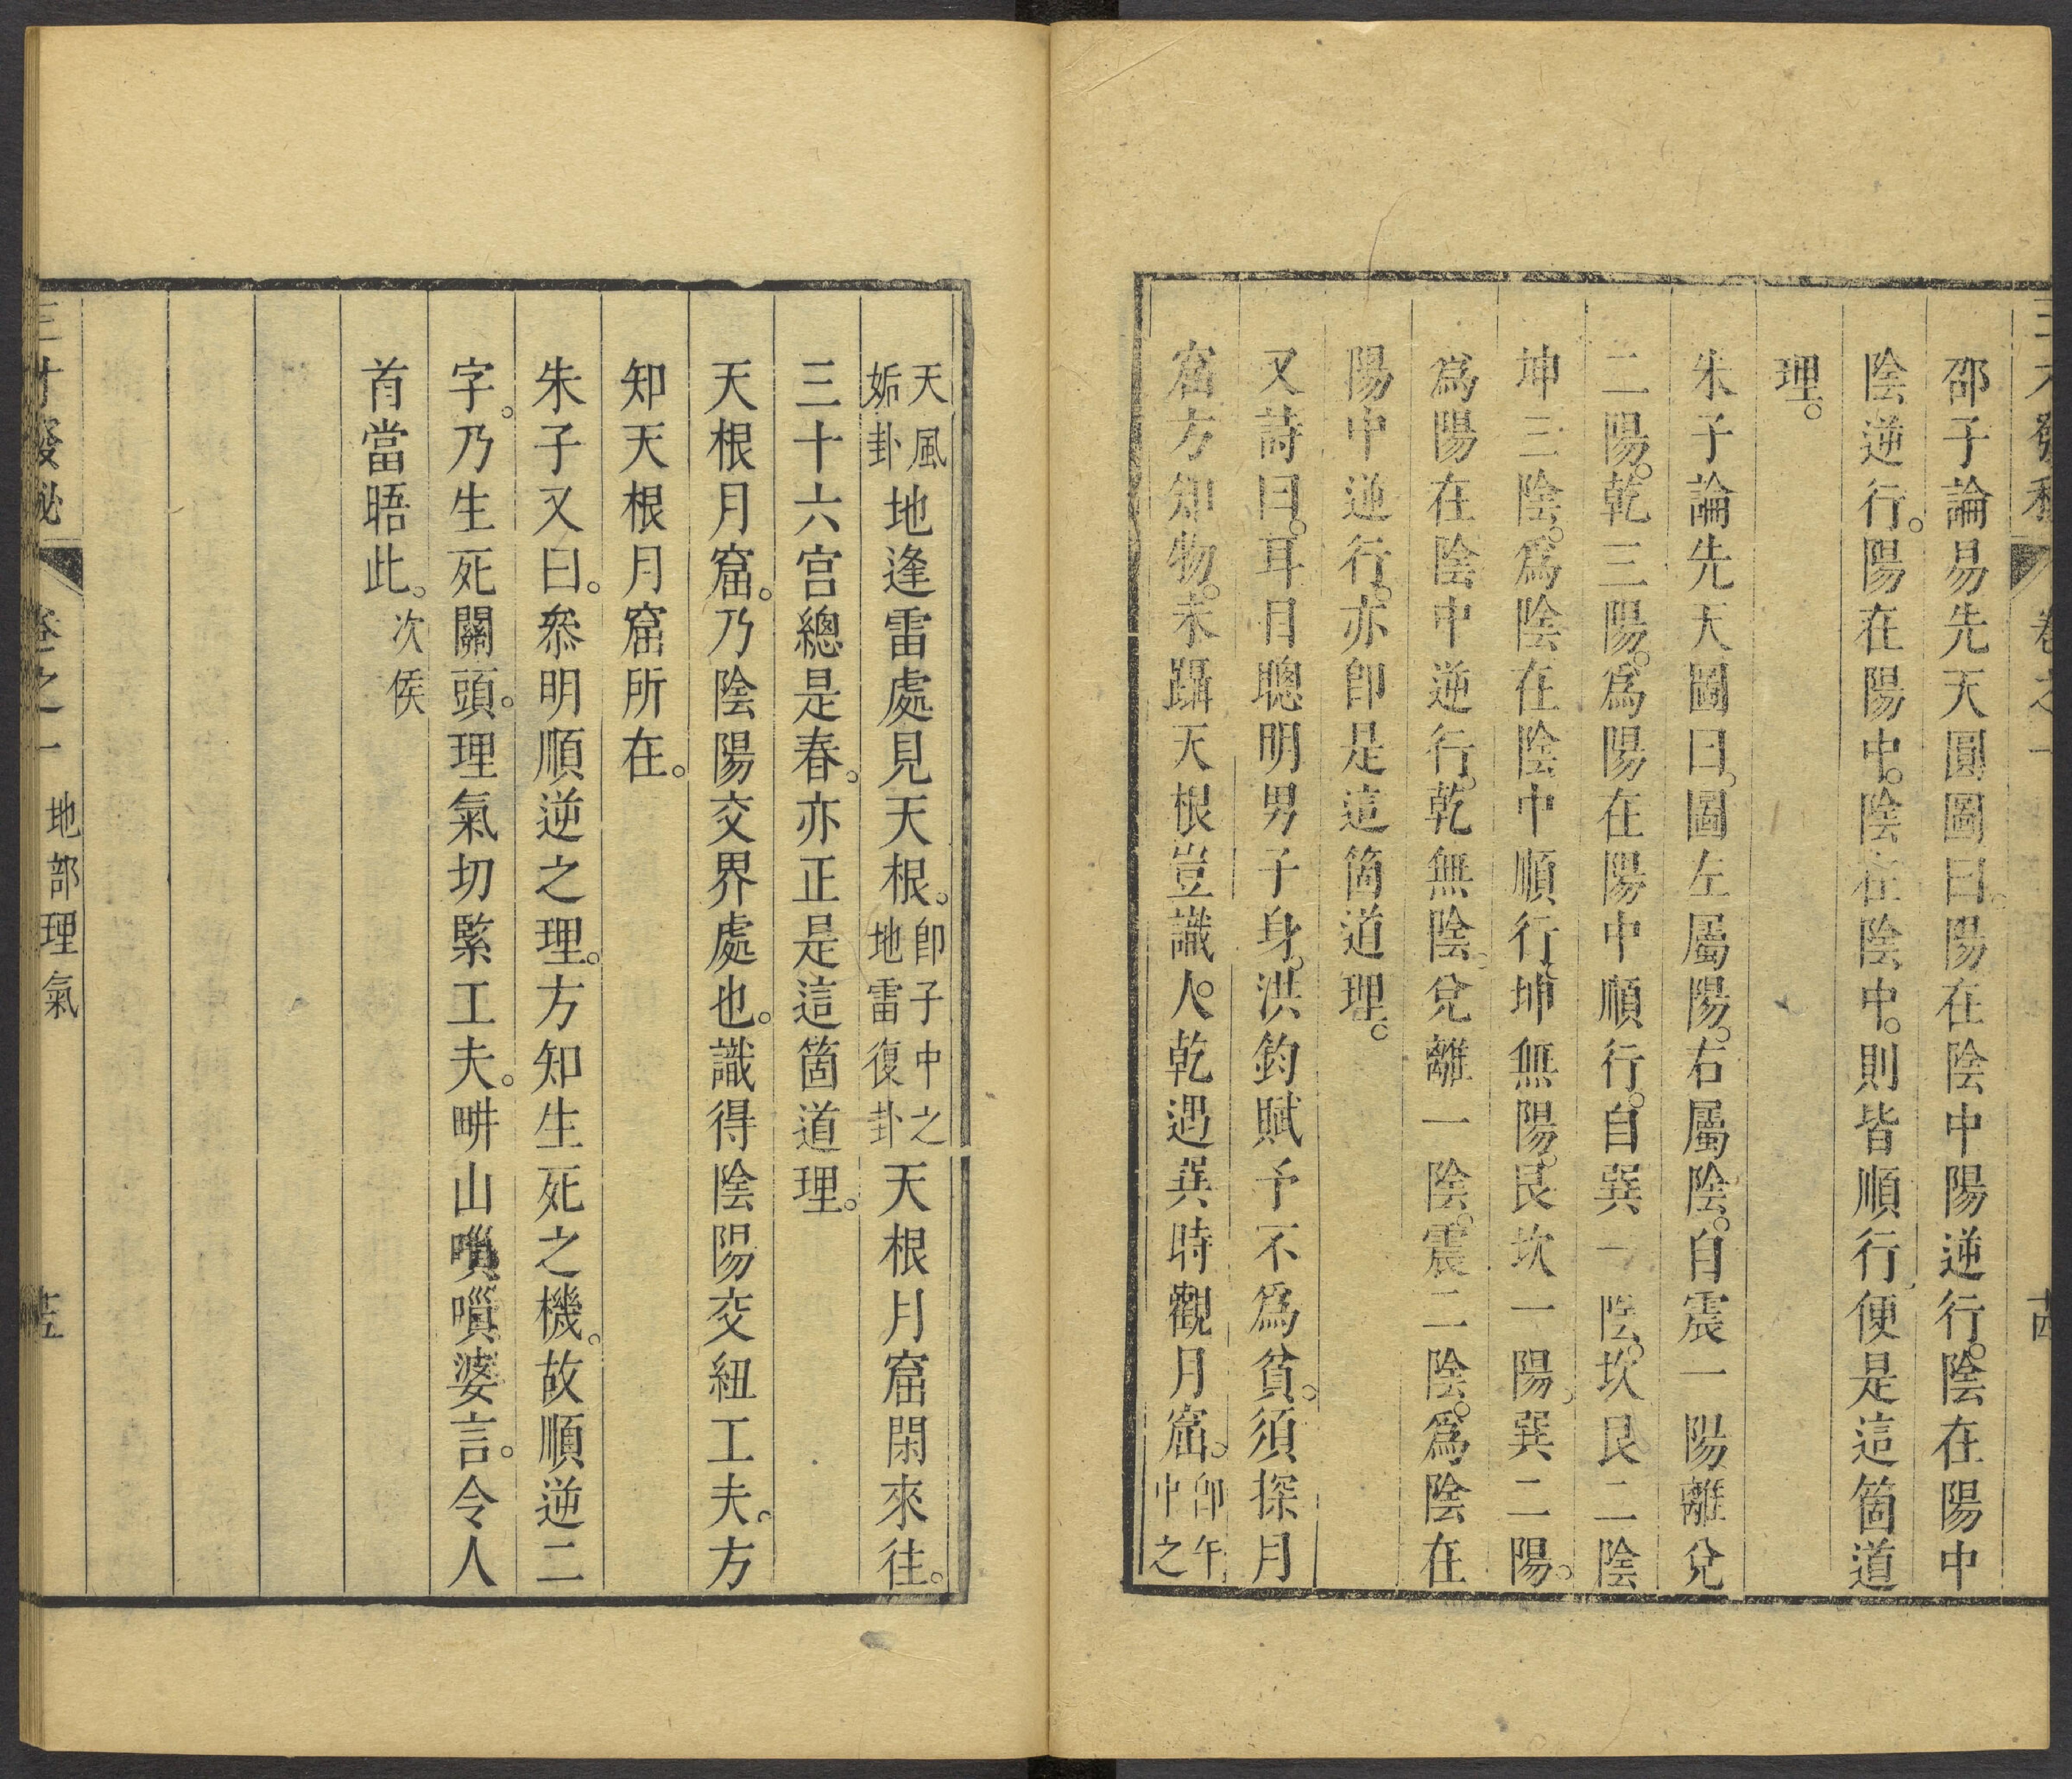 三才發秘 卷之一 十四
邵子論易先天圓圖曰。陽在陰中陽逆行。陰在陽中
陰逆行。陽在陽中。陰在陰中。則皆順行。便是這箇道
理。
朱子論先天圖曰。圖左屬陽。右屬陰。自震一陽離兌
二陽。乾三陽。為陽在陽中順行。自巽一陰。坎艮二陰
坤三陰。為陰在陰中順行。坤無陽。艮坎一陽。巽二陽。
為陽在陰中逆行。乾無陰。兌離一陰。震二陰。為陰在
陽中逆行。亦即是這箇道理。
又詩曰。耳目聰明男子身。洪鈞賦予不為貧。須探月
窟方知物。未躡天根豈識人。乾遇巽時觀月窟。即午中之
天風姤卦地逢雷處見天根。即子中之地雷復卦天根月窟閑來往。
三十六宮總是春。亦正是這箇道理。
天根月窟。乃陰陽交界處也。識得陰陽交紐工夫。方
知天根月窟所在。
朱子又曰。叅明順逆之理。方知生死之機。故順逆二
字。乃生死關頭。理氣切緊工夫。畊山嗩嗩婆言。令人
首當晤此。次侯
三才發秘 卷之一 地部理氣 十五